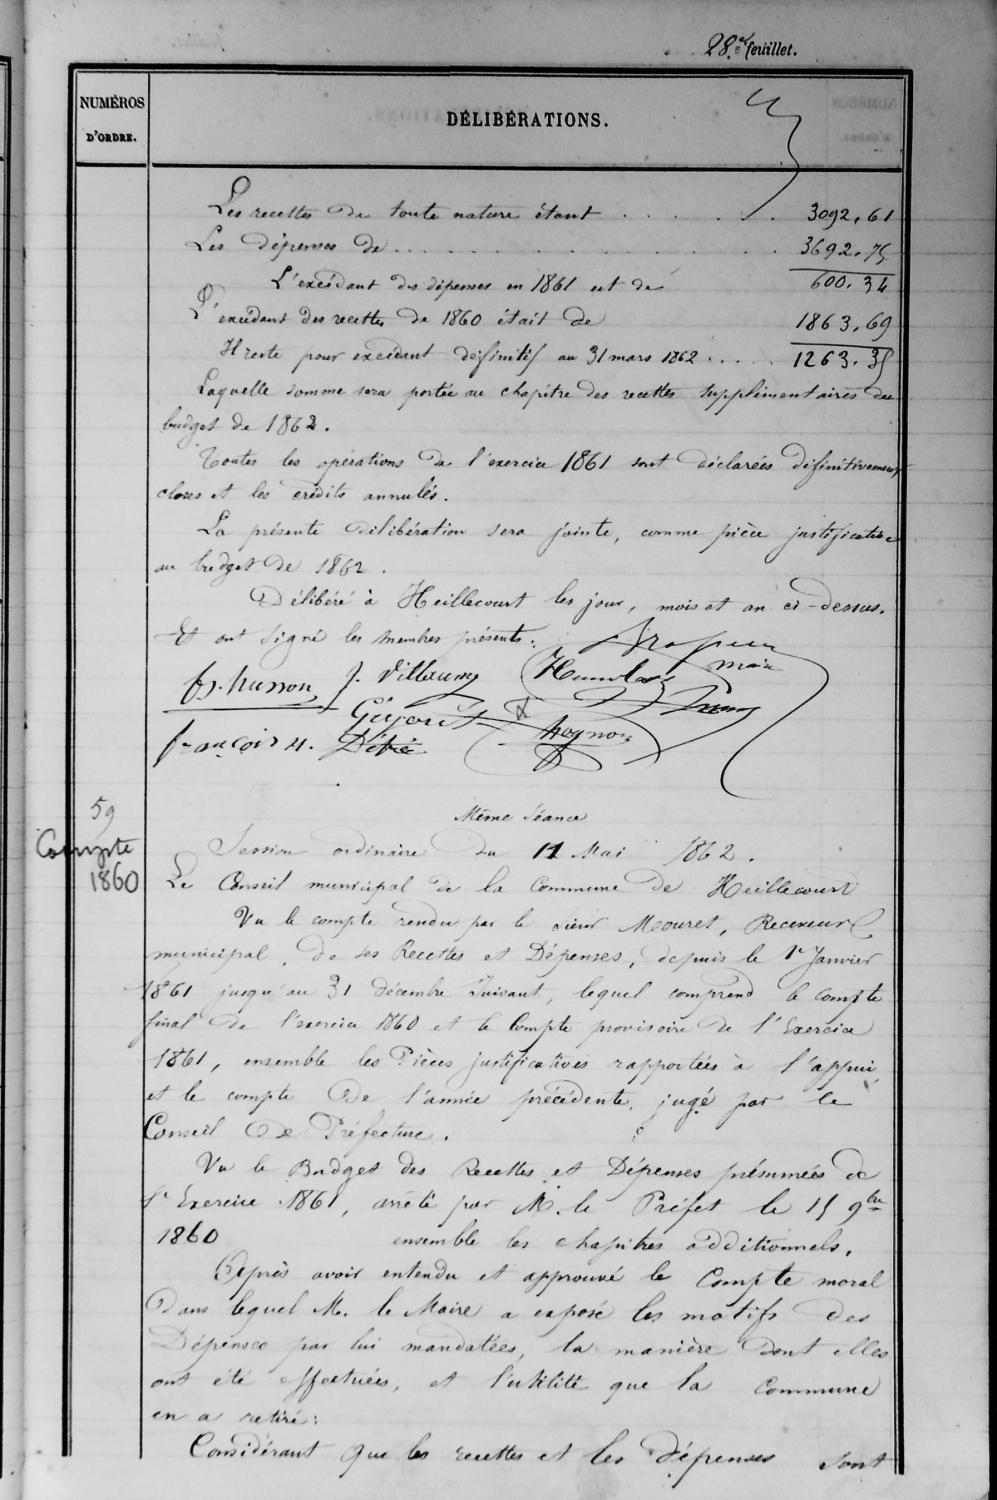 28.e feuillet.
NUMÉROS
D'ORDRE.
DÉLIBÉRATIONS.
Les recettes de toute nature étant . . . . . . . 3092,61
Les dépenses de . . . . . . . . . . . . 3692.75
L'excédant des dépenses en 1861 est de 600.34
L'excédant des recettes de 1860 était de 1863,69
Il reste pour excédant définitif au 31 mars 1862 . . . . . 1263.35
Laquelle somme sera portée au chapitre des recettes supplémentaires du
budget de 1862.
Toutes les opérations de l'exercice 1861 sont déclarées définitivement
closes et les crédits annulés.
La présente délibération sera jointe, comme pièce justificative
au budget de 1862.
Délibéré à Heillecourt les jour, mois et an ci-dessus.
Et ont signé les membres présents:
maire
fs. husson J. Villaumy
françois n.
Chagnon
59
Compte
1860
Même Séance
Session ordinaire du 11 Mai 1862.
Le Conseil municipal de la Commune de Heillecourt
Vu le compte rendu par le Sieur Mouret, Receveur
municipal, de ses Recettes et Dépenses, depuis le 1er Janvier
1861 jusqu'au 31 décembre Suivant, lequel comprend le compte
final de l'exercice 1860 et le Compte provisoire de l'Exercice
1861, ensemble les Pièces justificatives rapportées à l'appui,
et le compte de l'année précédente, jugé par le
Conseil de Préfecture.
Vu le Budget des Recettes et Dépenses présumées de
l'Exercice 1861, arrêté par M. le Préfet le 15 9bre
1860 ensemble les chapitres additionnels.
Après avoir entendu et approuvé le Compte moral
Dans lequel M. le Maire a exposé les motifs des
Dépenses par lui mandatées, la manière dont elles
ont été effectuées, et l'utilité que la Commune
en a retiré:
Considérant que les recettes et les dépenses sont